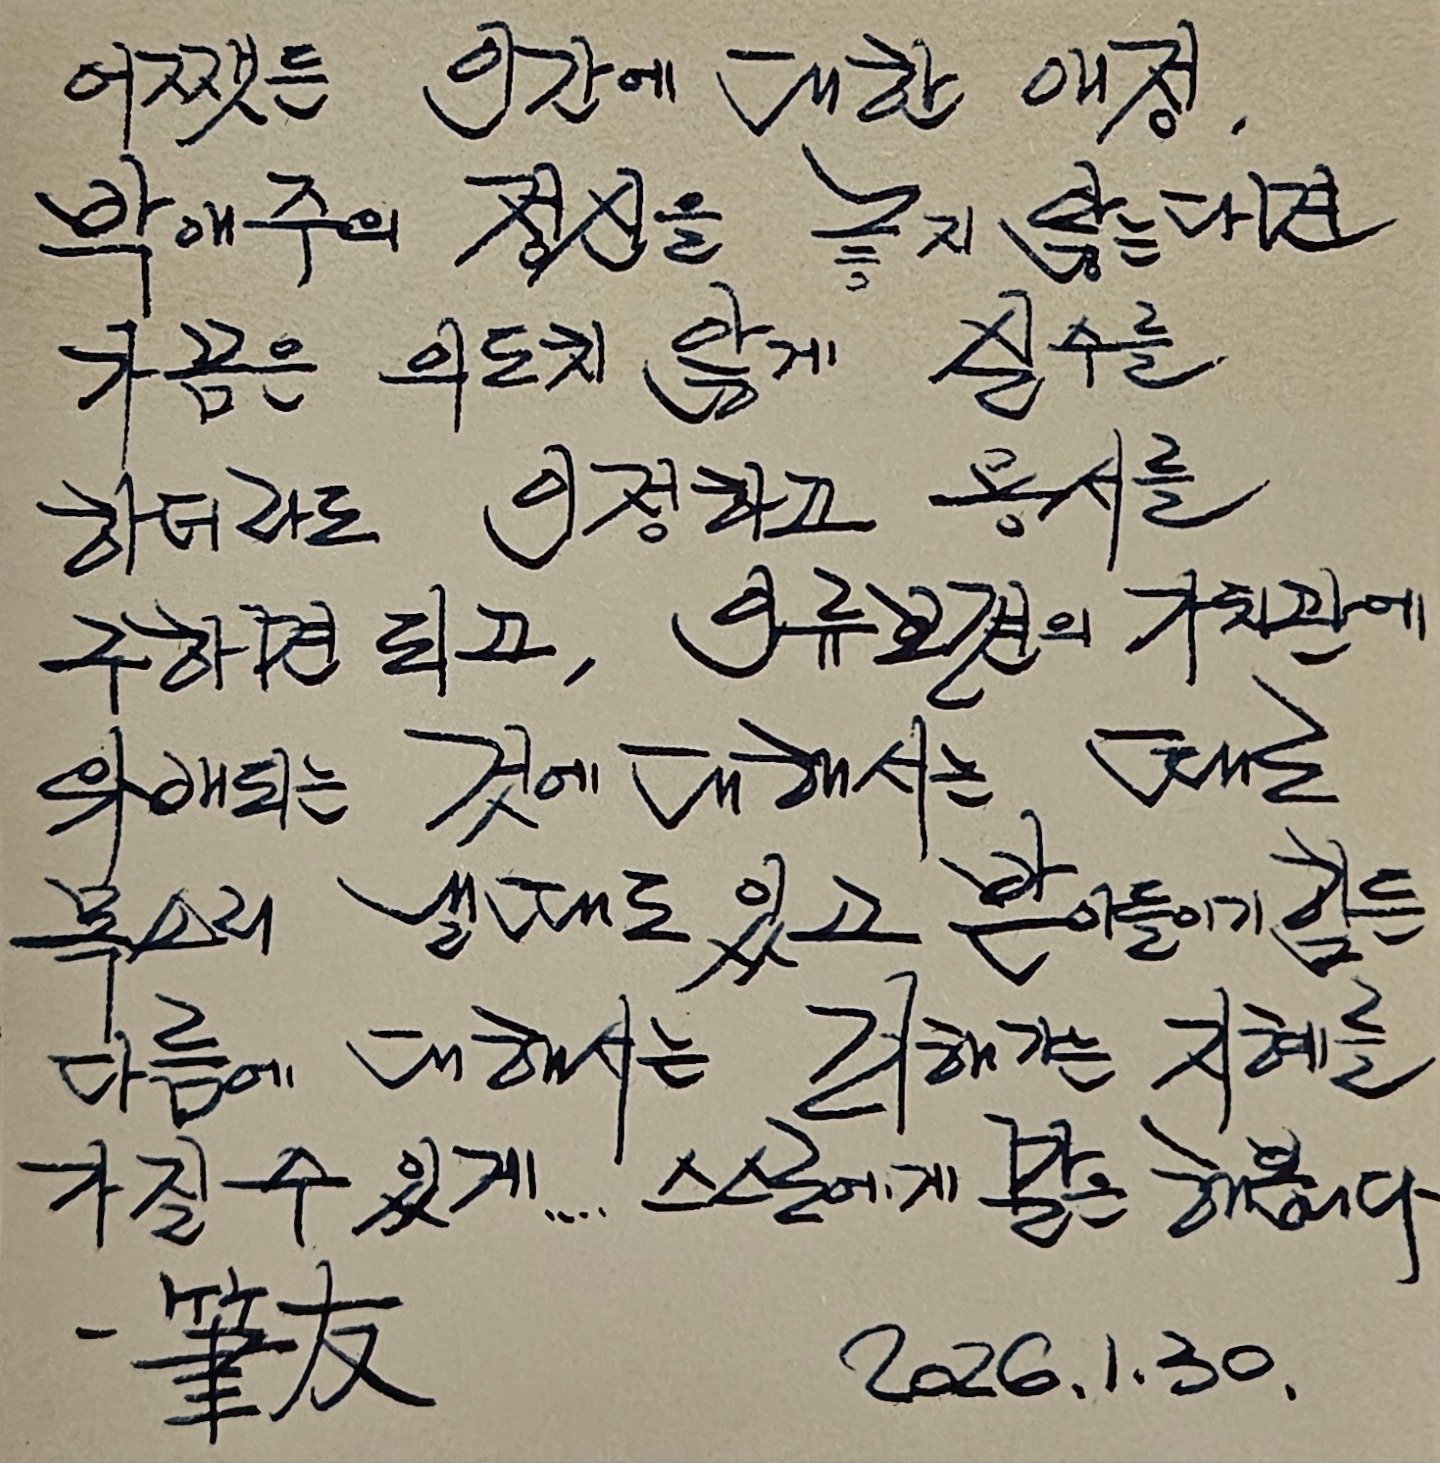 어쨋든 인간에 대한 애정,
박애주의 정신을 놓지 않는다면
가끔은 의도치 않게 실수를
하더라도 인정하고 용서를
구하면 되고, 인류보편의 가치관에
위해되는 것에 대해서는 때로
목소리 낼때도 있고 받아들이기 힘든
다름에 대해서는 피해가는 지혜를
가질 수 있게.... 스스로에게 말을 해봅니다
- 筆友 2026.1.30.